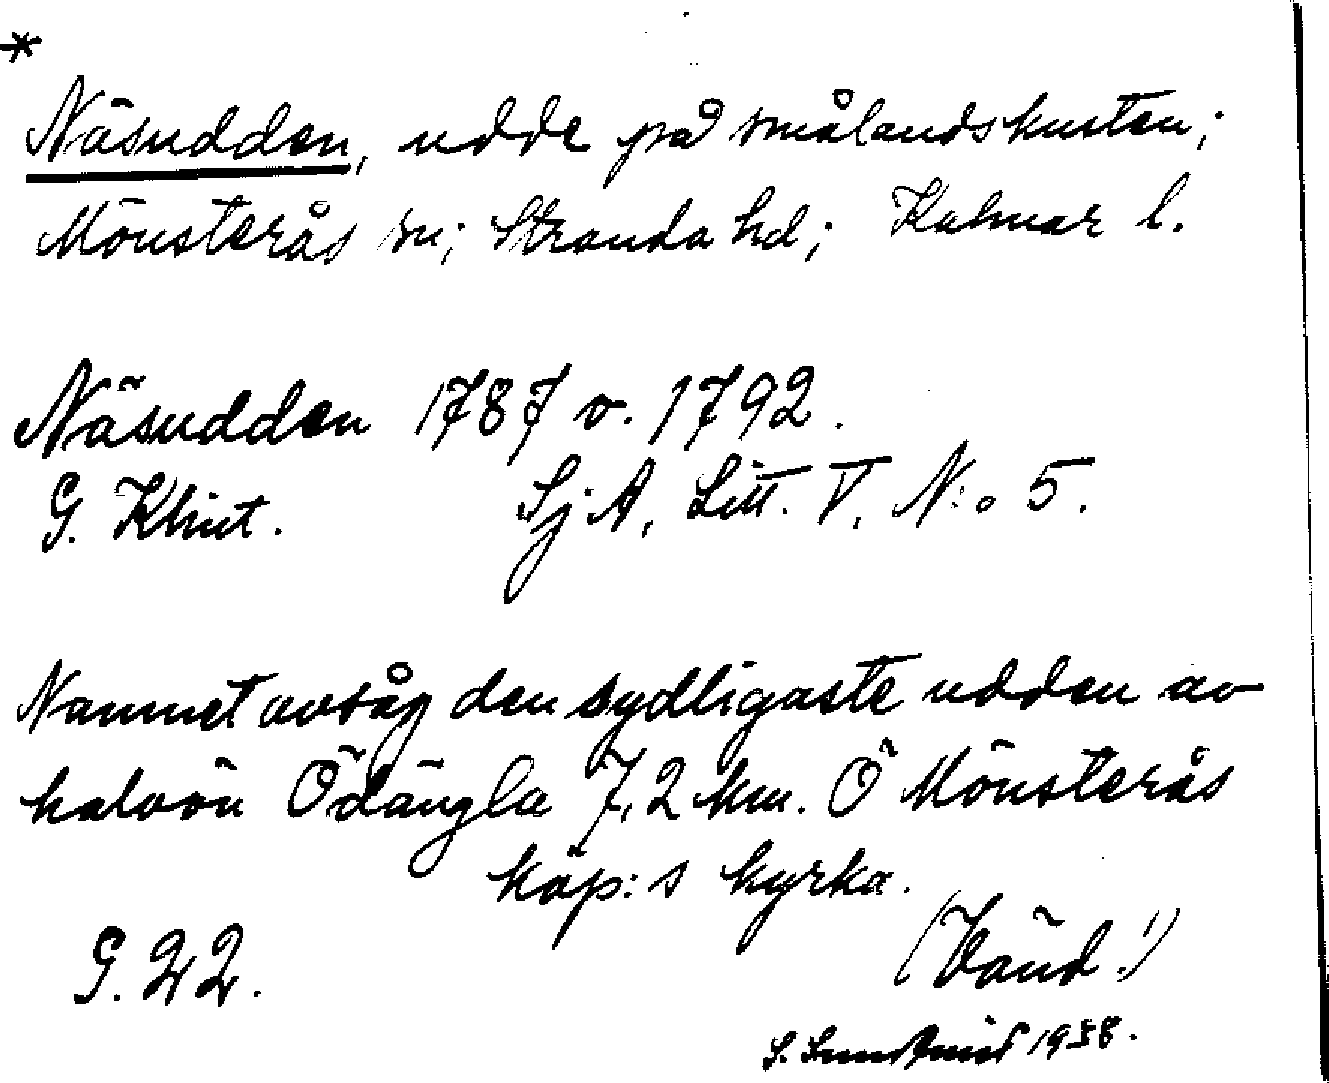 *
Näsudden, udde på smålandskusten;
Mönsterås sn; Stranda hd; Kalmar l.
Näsudden 1787 o. 1792.
G. Klint. Sj. A, Litt. V, N:o 5.
Namnet avsåg den sydligaste udden av
halvön Ödängla 7,2 km. Ö Mönsterås
köp:s kyrka.
(Vänd!)
G. 22.
S. 1938.